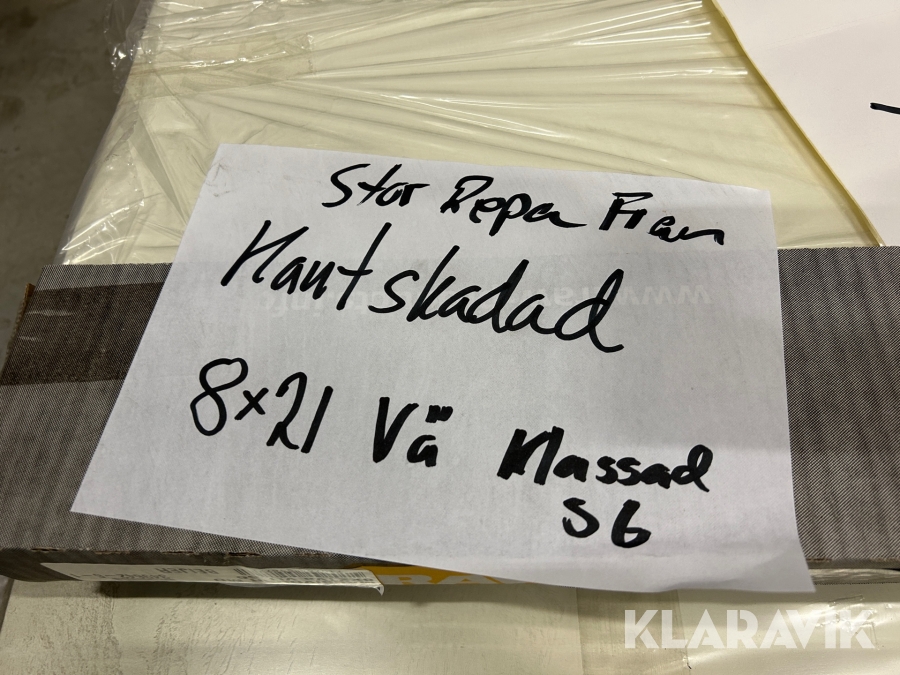 Stor Repa Fram
Kantskadad
8x21 Vä Klassad
S6
KLARAVIK